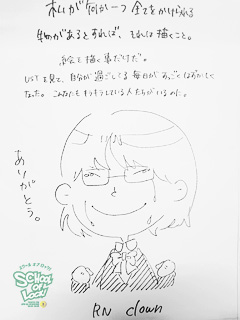 私が何か一つ全てをかけられる
物があるとすれば、それは描くこと。
絵を描く事だけだ。
USTを見て、自分が過ごしてる毎日がすっごくはずかしく
なった。こんなにもキラキラしている人たちがいるのに。
ありがとう。
SCHOOL OF LOCK!
RN clown